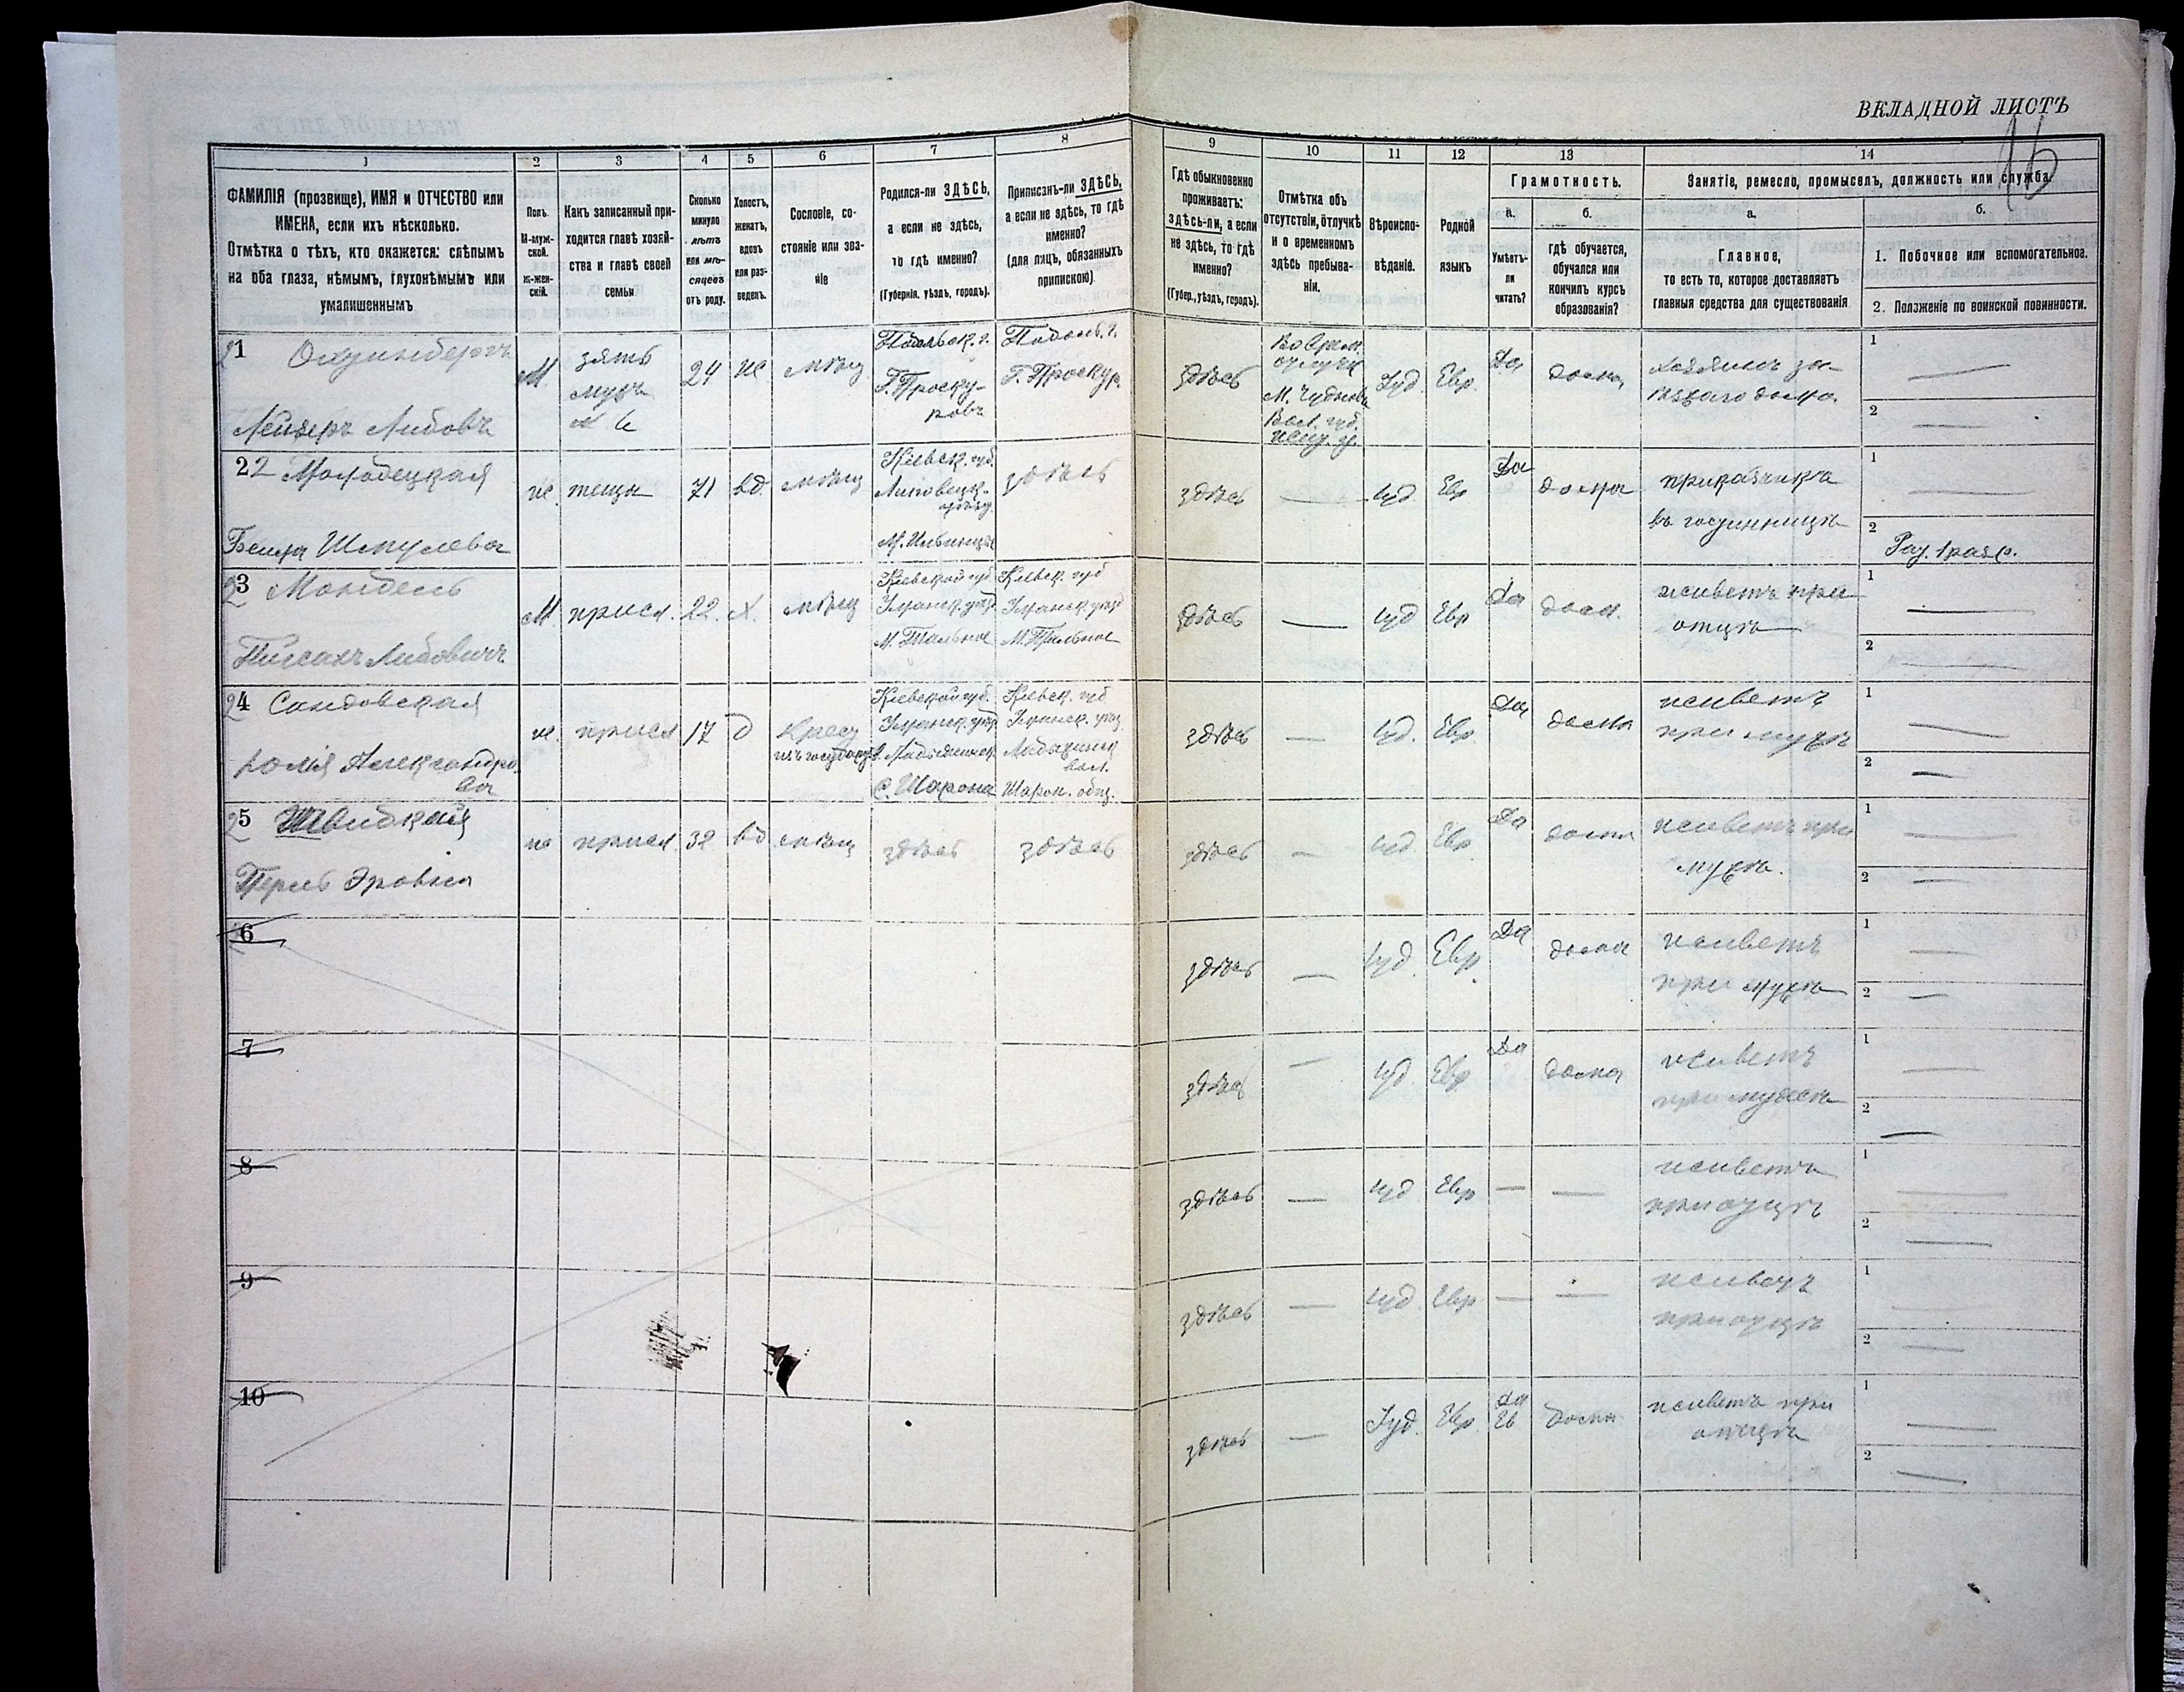 ВКЛАДНОЙ ЛИСТЪ
16
1 2 3 4 5 6 7 8 9 10 11 12 13 14
ФАМИЛІЯ (прозвище), ИМЯ и ОТЧЕСТВО или
ИМЕНА, если ихъ нѣсколько.
Отмѣтка о тѣхъ, кто окажется: слѣпымъ
на оба глаза, нѣмымъ, глухонѣмымъ или
умалишеннымъ
Полъ.
М-муж-
ской.
Ж-жен-
скій.
Какъ записанный при-
ходится главѣ хозяй-
ства и главѣ своей
семьи
Сколько
минуло
лѣтъ
или мѣ-
сяцевъ
отъ роду.
Холостъ,
женатъ,
вдовъ
или раз-
веденъ.
Сословіе, со-
стояніе или зва-
ніе
Родился-ли ЗДѢСЬ,
а если не здѣсь,
то гдѣ именно?
(Губернія, уѣздъ, городъ).
Приписанъ-ли ЗДѢСЬ,
а если не здѣсь, то гдѣ
именно?
(для лицъ, обязанныхъ
припискою)
Гдѣ обыкновенно
проживаетъ:
здѣсь-ли, а если
не здѣсь, то гдѣ
именно?
(Губер., уѣздъ, городъ).
Отмѣтка объ
отсутствіи, отлучкѣ
и о временномъ
здѣсь пребыва-
ніи.
Вѣроиспо-
вѣданіе.
Родной
языкъ
Грамотность.
а.
Умѣетъ-
ли
читать?
б.
гдѣ обучается,
обучался или
кончилъ курсъ
образованія?
Занятіе, ремесло, промыселъ, должность или служба
а.
Главное,
то есть то, которое доставляетъ
главныя средства для существованія
б.
1. Побочное или вспомогательное.
2. Положеніе по воинской повинности.
21
Лейзеръ Либовъ
М. зять
мужъ
24 же мѣщ
Подольск. г.
Г. Проску-
ровъ
Подоль. г.
Г. Проскур.
здѣсь
М. Чудновъ
Вол. губ.
Іуд. Евр. Да дома
1
2
22
Шмулева
же. теща 71 вд. мѣщ
Кіевск. губ.
Липовецк.
М. Ильинцы
здѣсь
здѣсь — іуд Евр Да дома
въ гостинницѣ
1
2
23 Мондель
Либовичъ
М. присл. 22. х. мѣщ
Кіевской губ
Уманск. уѣз.
М. Тальное
Кіевск. губ
Уманск. уѣз
М. Тальное
здѣсь — іуд Евр Да дома
живетъ при
отцѣ
1
2
24 Сандовская
Александро-
ва
же. присл 17 д
Кіевской губ.
Уманск. уѣз
Кіевск. губ
Уманск. уѣз
здѣсь — іуд. Евр. Да дома
живетъ
при мужѣ
1
2
25 Швидкая
Перль
же присл 32 вд мѣщ
здѣсь здѣсь
здѣсь — іуд. Евр Да дома
живетъ при
мужѣ.
1
2
6
здѣсь — іуд. Евр Да дома
живетъ
при мужѣ
1
2
7
здѣсь — іуд. Евр. Да дома
живетъ
при мужѣ
1
2
8
здѣсь — іуд Евр — —
живетъ
при отцѣ
1
2
9
здѣсь — іуд. Евр — —
живетъ
при отцѣ
1
2
10
здѣсь — Іуд. Евр. Да
Ев дома
живетъ при
отцѣ
1
2